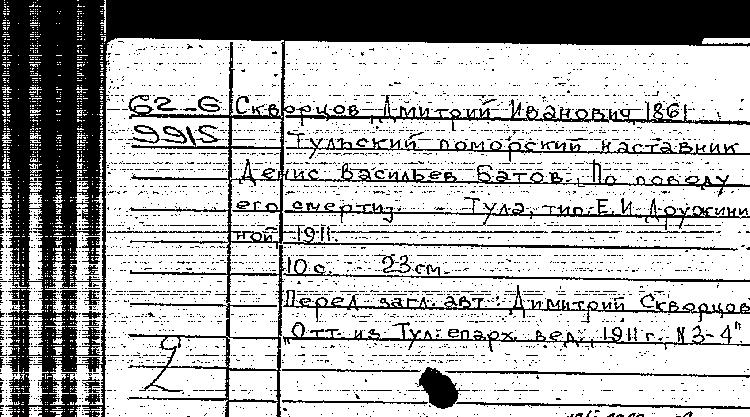 62-6 Скворцов, Дмитрий Иванович, 1861
9915 Тульский поморский наставник
Денис Васильев Батов. По поводу
его смерти]. - Тула, тип. Е.И. Дружини
ной, 1911.
10 с. 23 см.
Перед загл. авт.: Димитрий Скворцов
"Отт. из Тул. епарх. вед., 1911 г., № 3-4"
2